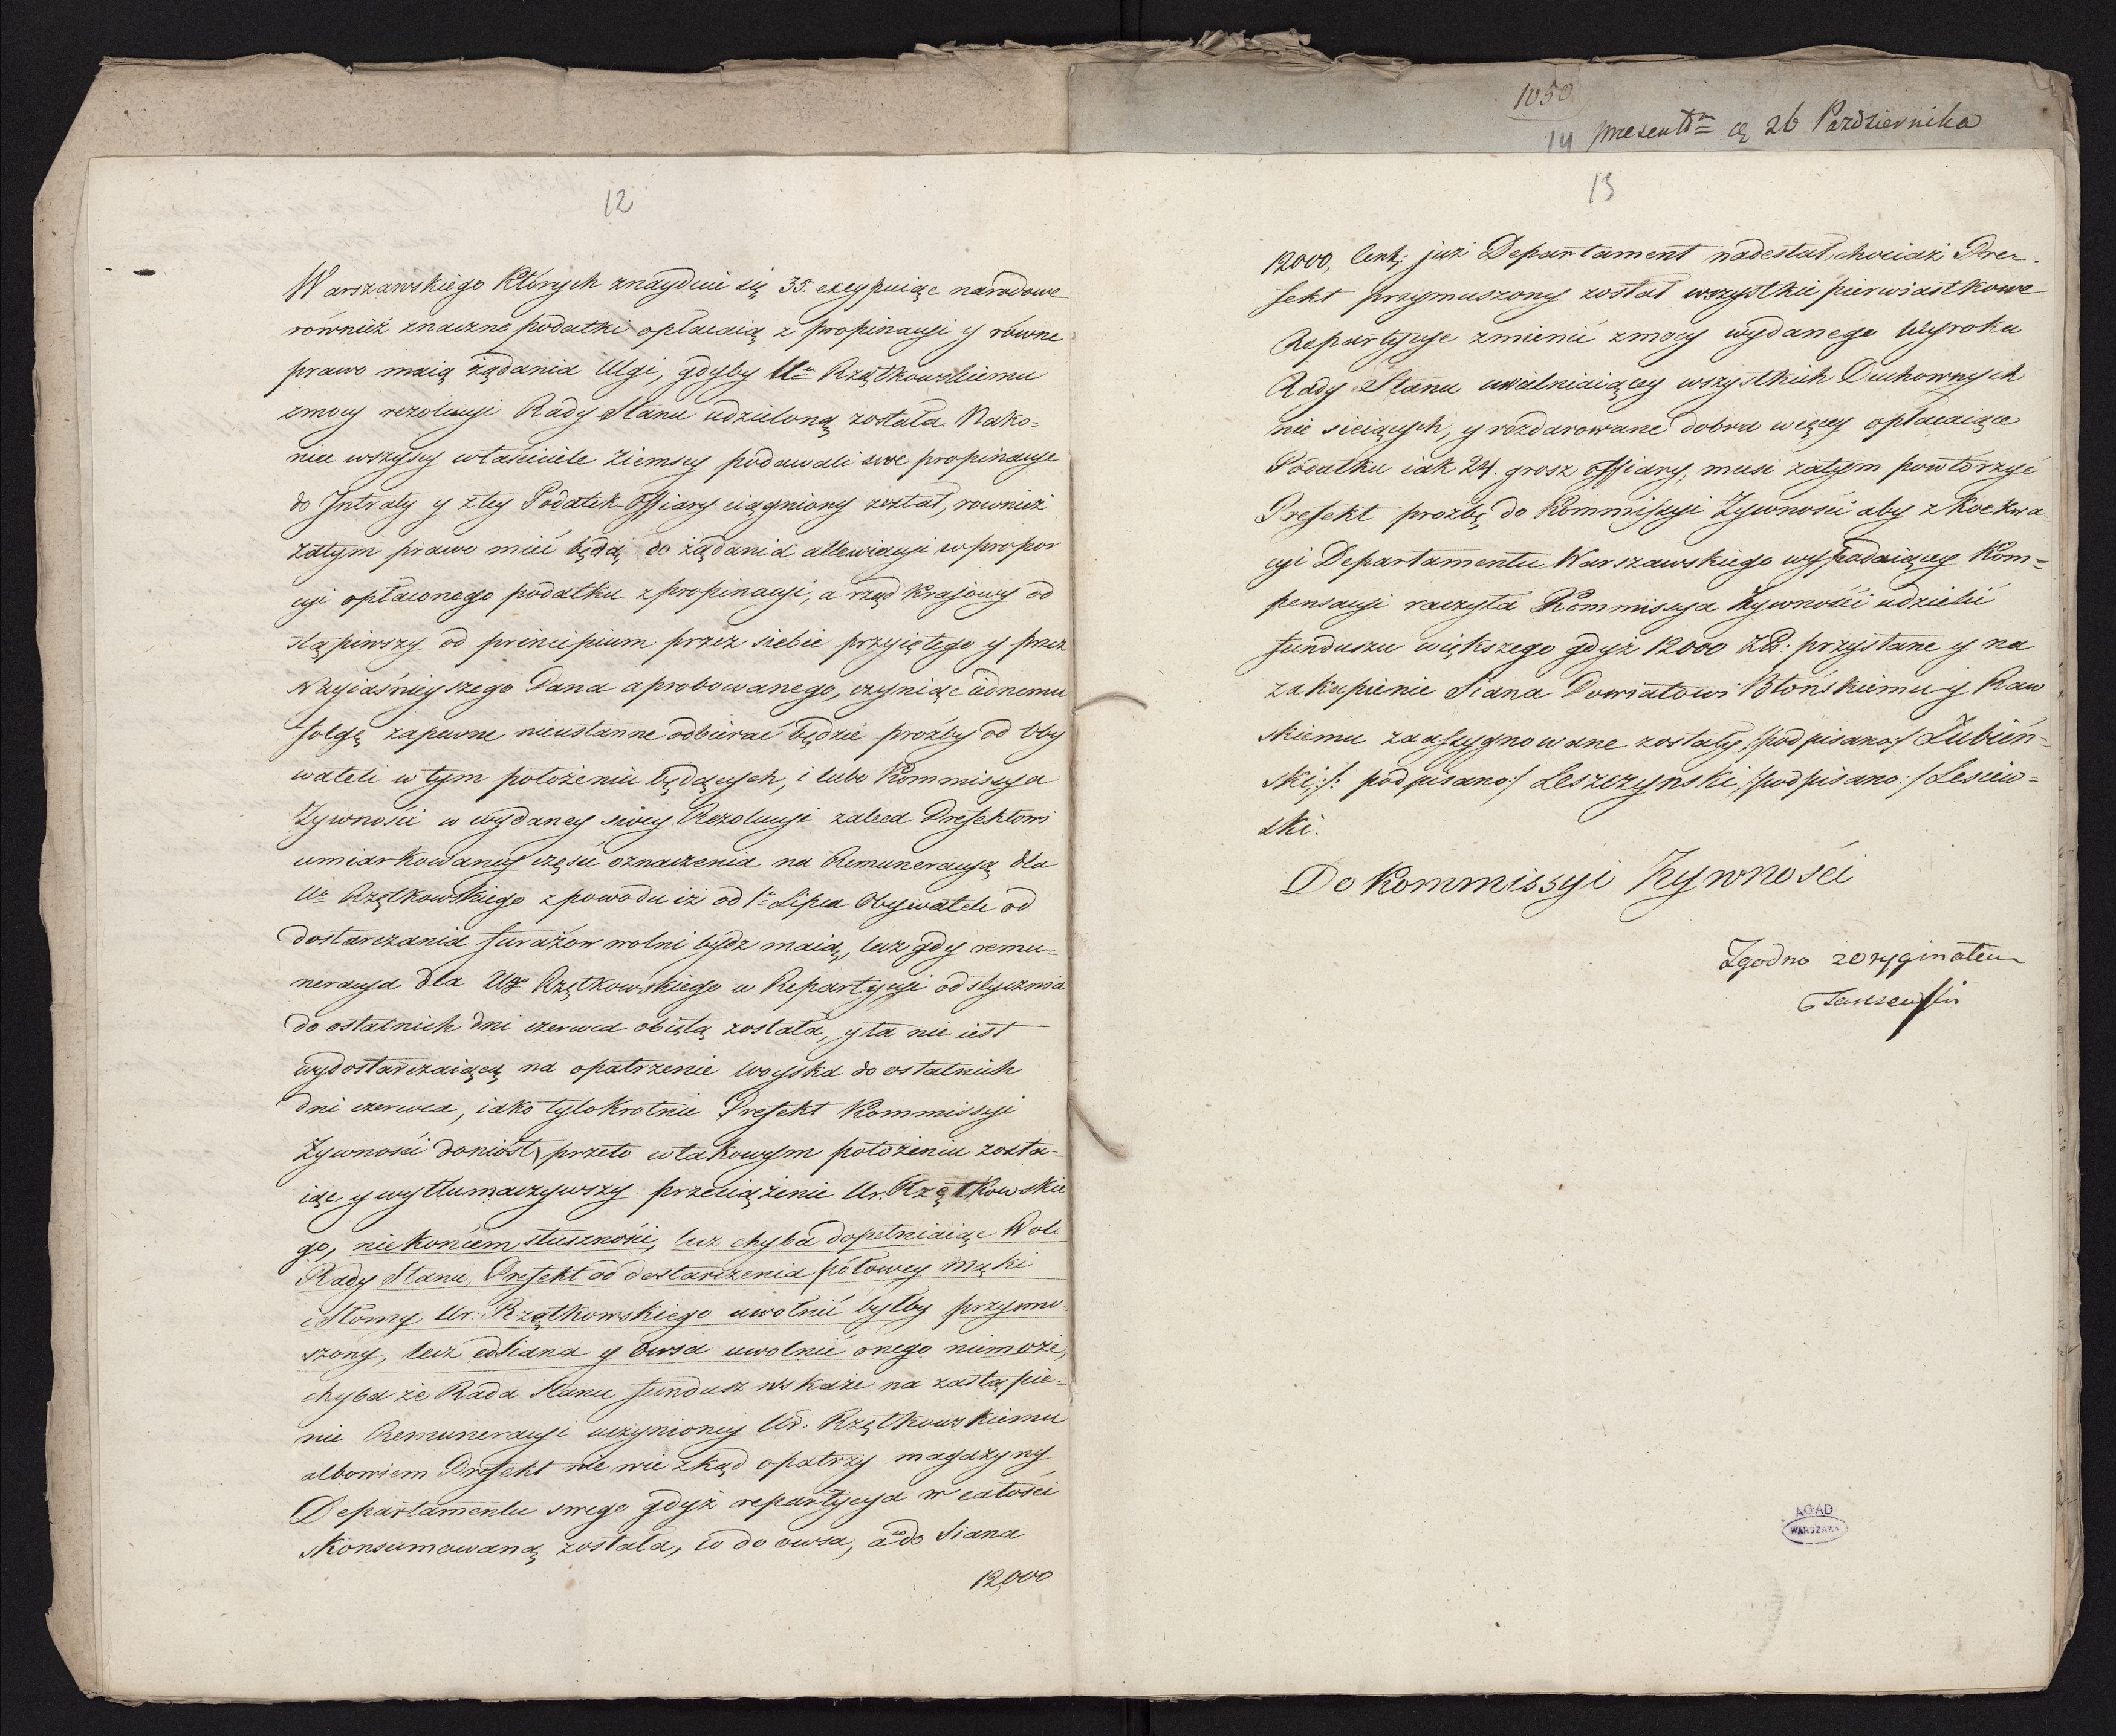 12
Warszawskiego których znayduie się 35. excypuiąc narodowe
również znaczne podatki opłacaią z propinacyi y równe
prawo maią żądania Ulgi, gdyby Ur Rzętkowskiemu
zmocy rezolucyi Rady Stanu udzieloną została. Nako=
niec wszyscy właściciele Ziemscy podawali swe propinacye
do Jntraty y z tey Podatek Offiary ciągniony został, rownież
zatym prawo mieć będą, do żądania allewiacyi w propor
cyi opłaconego podatku z propinacyi, a rząd Krajowy od
stąpiwszy od principium przez siebie przyiętego y przez
Nayiaśnieyszego Pana aprobowanego, czyniąc iednemu
folgę zapewne nieustanne odbierać będzie proźby od Oby
wateli w tym położeniu będących, i lubo Kommissya
Żywności w wydaney swey Rezolucyi zaleca Prefektowi
umiarkowaney części oznaczenia na Remuneracyą dla
Ur Rzętkowskiego z powodu iż od 1o Lipca Obywatele od
dostarczania furażow wolni bydz maią, lecz gdy remu=
neracya dla Ugo Rzętkowskiego w Repartycyi od stycznia
do ostatnich dni czerwca obiętą została, y ta nie iest
wydostarczaiącą na opatrzenie woyska do ostatnich
dni czerwca, iako tylokrotnie Prefekt Kommissyi
Żywności doniósł, przeto w takowym położeniu zosta=
iąc y wytłumaczywszy przeciążenie Ur. Rzętkowskie
go, nie końcem słuszności, lecz chyba dopełniaiąc Woli
Rady Stanu, Prefekt od dostarczenia połowey Mąki
i Słomy Ur. Rzętkowskiego uwolnić byłby przymu=
szony, lecz od Siana y Owsa uwolnić onego niemoże,
chyba że Rada Stanu fundusz wskaże na zastąpie=
nie Remuneracyi uczynioney Ur: Rzętkowskiemu
albowiem Prefekt nie wie zkąd opatrzy magazyny
Departamentu swego gdyż repartycya w całości
skonsumowaną została, co do owsa, a co do Siana
12,000
1050
14 presentm d 26 Pazdziernika
13
12000, Cent: już Departament nadesłał, chociaż Pre=
fekt przymuszony został wszystkie pierwiastkowe
Repartycye zmienić zmocy wydanego Wyroku
Rady Stanu uwalniaiącey wszystkich Duchownych
nie sieiących, y rozdarowane dobra więcey opłacaiące
Podatku iak 24. grosz Offiary, musi zatym powtórzyć
Prefekt prozbę do Kommissyi Żywności aby z Koekwa
cyi Departamentu Warszawskiego wypadaiącey Kom=
pensacyi raczyła Kommissya Żywności udzielić
funduszu większego gdyż 12000 Zł: przysłane y na
zakupienie Siana Powiatowi Błońskiemu y Raw
skiemu zaassygnowane zostały /:podpisano:/ Łubień=
ski, /: podpisano:/ Leszczynski, /:podpisano:/ Lesiew=
ski.
Do Kommissyi Żywności
Zgodno z oryginałem
AGAD
WARSZAWA